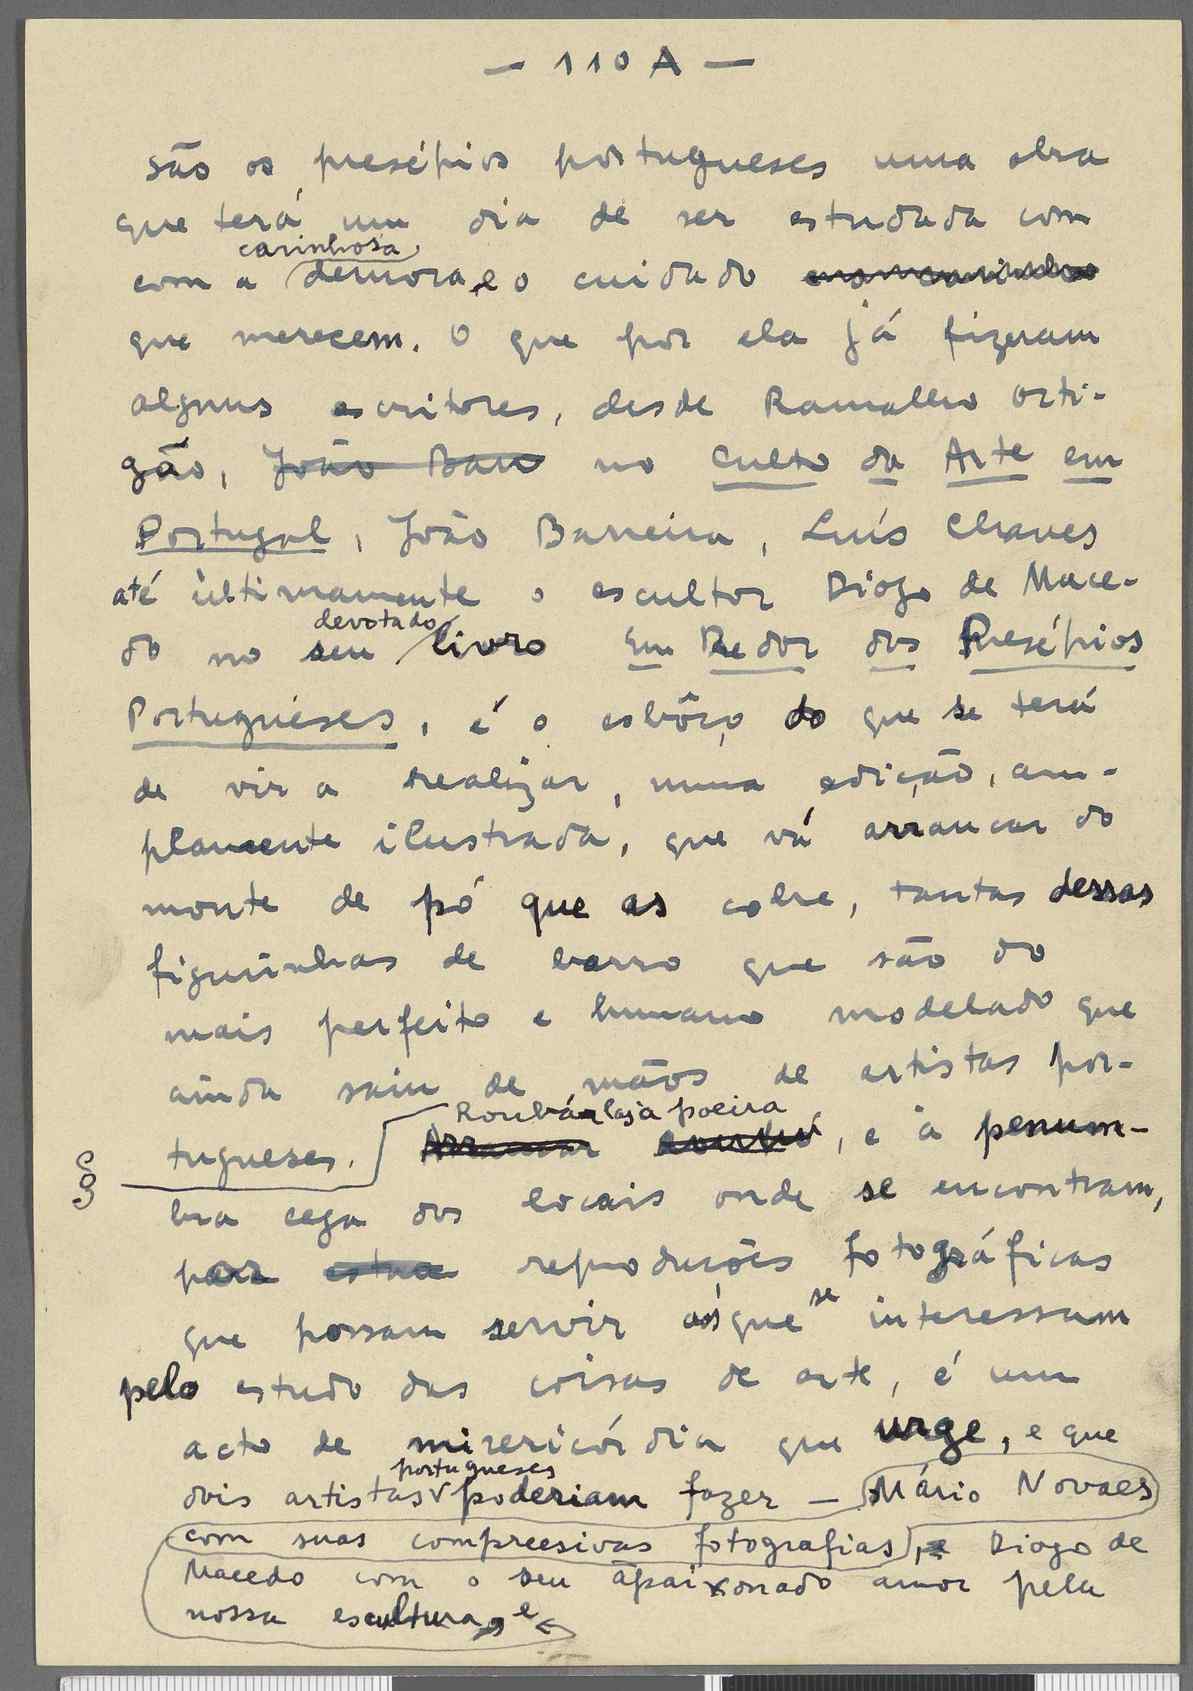 — 110 A —
são os presépios portugueses uma obra
que terá um dia de ser estudada com
carinhosa
com a demora, e o cuidado
que merecem. O que por ela já fizeram
alguns escritores, desde Ramalho Orti-
gão, João Barr no Culto da Arte em
Portugal, João Barreira, Luís Chaves
até ùltimamente o escultor Diogo de Mace-
devotado
do no seu livro Em Redor dos Presépios
Portugueses, é o esbôço do que se terá
de vir a realizar, numa edição, am-
plamente ilustrada, que vá arrancar do
monte de pó que as cobre, tantas dessas
figurinhas de barro que são do
mais perfeito e humano modelado que
ainda saiu de mãos de artistas por-
Roubá-las à poeira
§ tugueses. Arrancar, e à penum-
bra cega dos locais onde se encontram,
para reproduções fotográficas
que possam servir aos que se interessam
pelo estudo das coisas de arte, é um
acto de misericórdia que urge, e que
portugueses
dois artistas poderiam fazer — Mário Novaes
com suas compreesivas fotografias, e Diogo de
Macedo com o seu apaixonado amor pela
nossa escultura, e